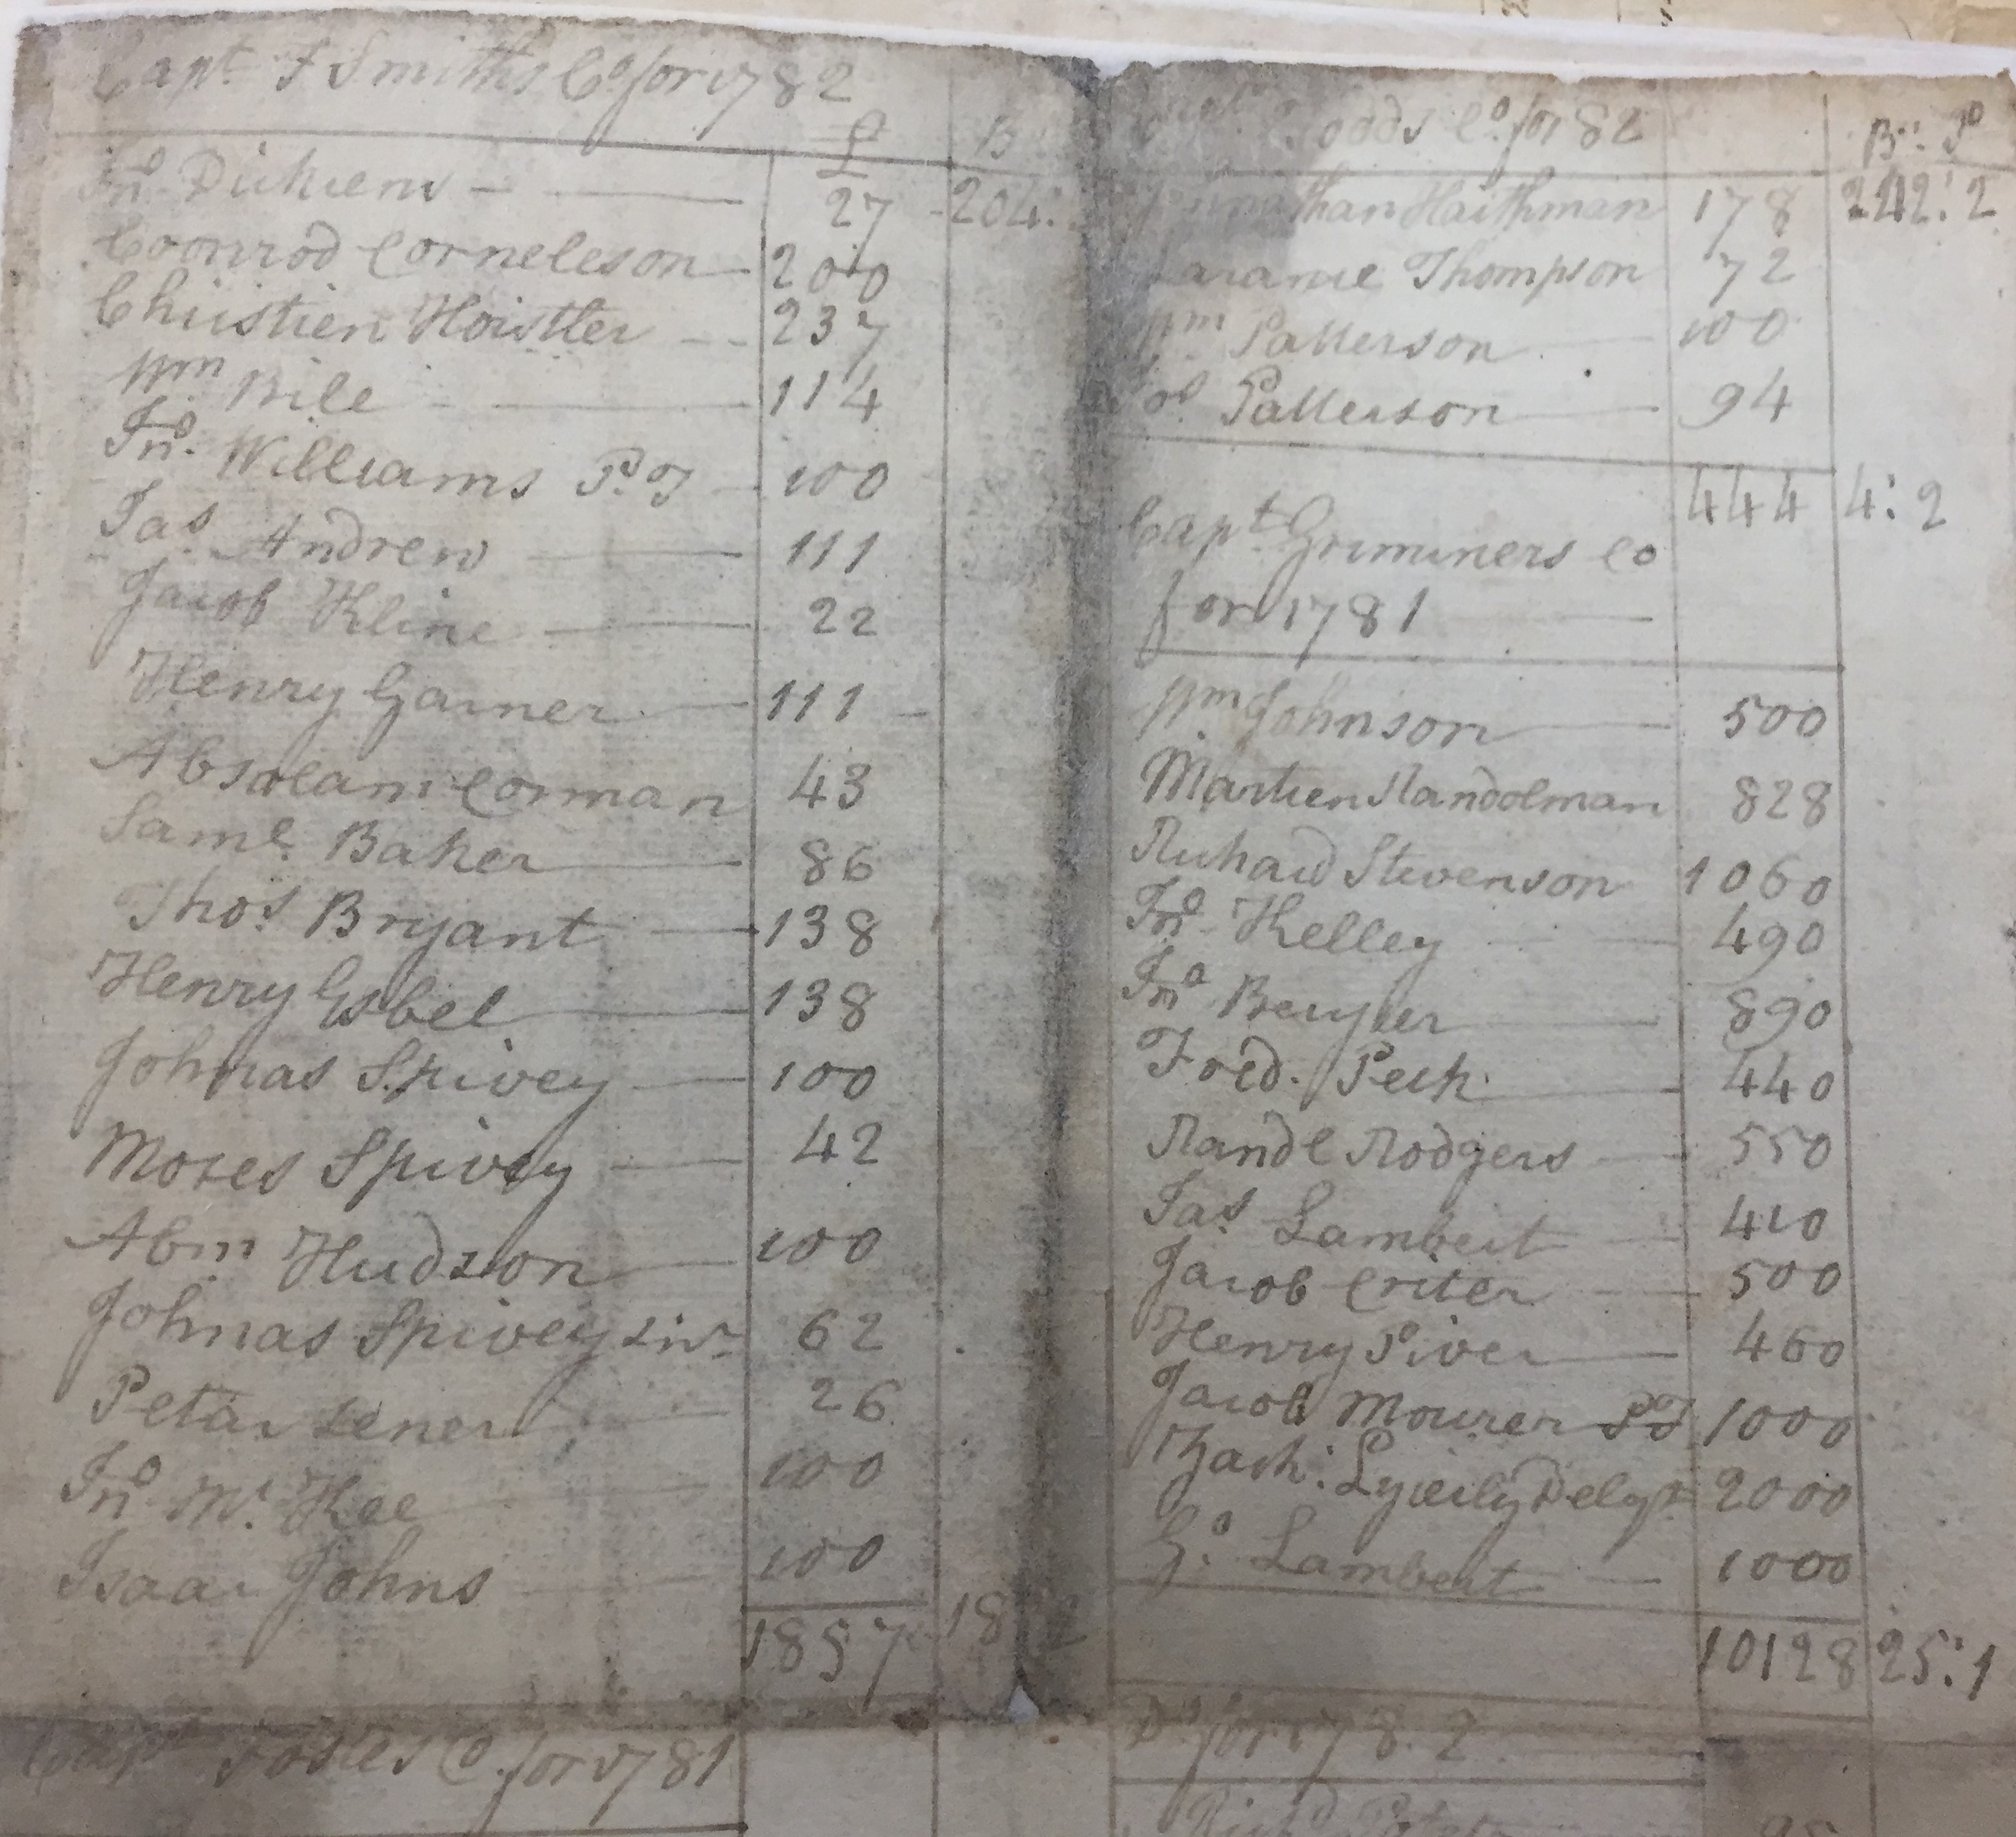 Capt. J Smiths Co. for 1782
£ B
Jno. Dickiens 27 204:
Coonrod Corneleson 200
Christien Hoistler 237
Wm Bile 114
Jno. Williams P.T 100
Jas. Andrew 111
Jacob Kline 22
Henry Garner 111
Absolam Corman 43
Saml. Baker 86
Thos. Bryant 138
Henry Esbel 138
Johnas Spivey 100
Moses Spivey 42
Abm Hudson 100
Johnas Spivey 62
Petar Lener 26
Jno. Mc. Kee 100
Isaac Johns 100
1857 18 2
Capt Co. for 1781
Capt. Co. for 82
B: P
Haithman 178 242:2
Thompson 72
Wm Patterson 100
Patterson 94
444 4:2
Capt. Grimmers Co
for 1781
Wm Johnson 500
Martien Randolman 828
Richard Stevenson 1060
Jno. Kelley 490
Jno. 890
Fred. Peck 440
Randl Rodgers 550
Jas. Lambert 410
Jacob Criter 500
Henry Piver 460
Jacob Mourer 1000
Zach: 2000
Go. Lambert 1000
10128 25:1
Do. for 1782